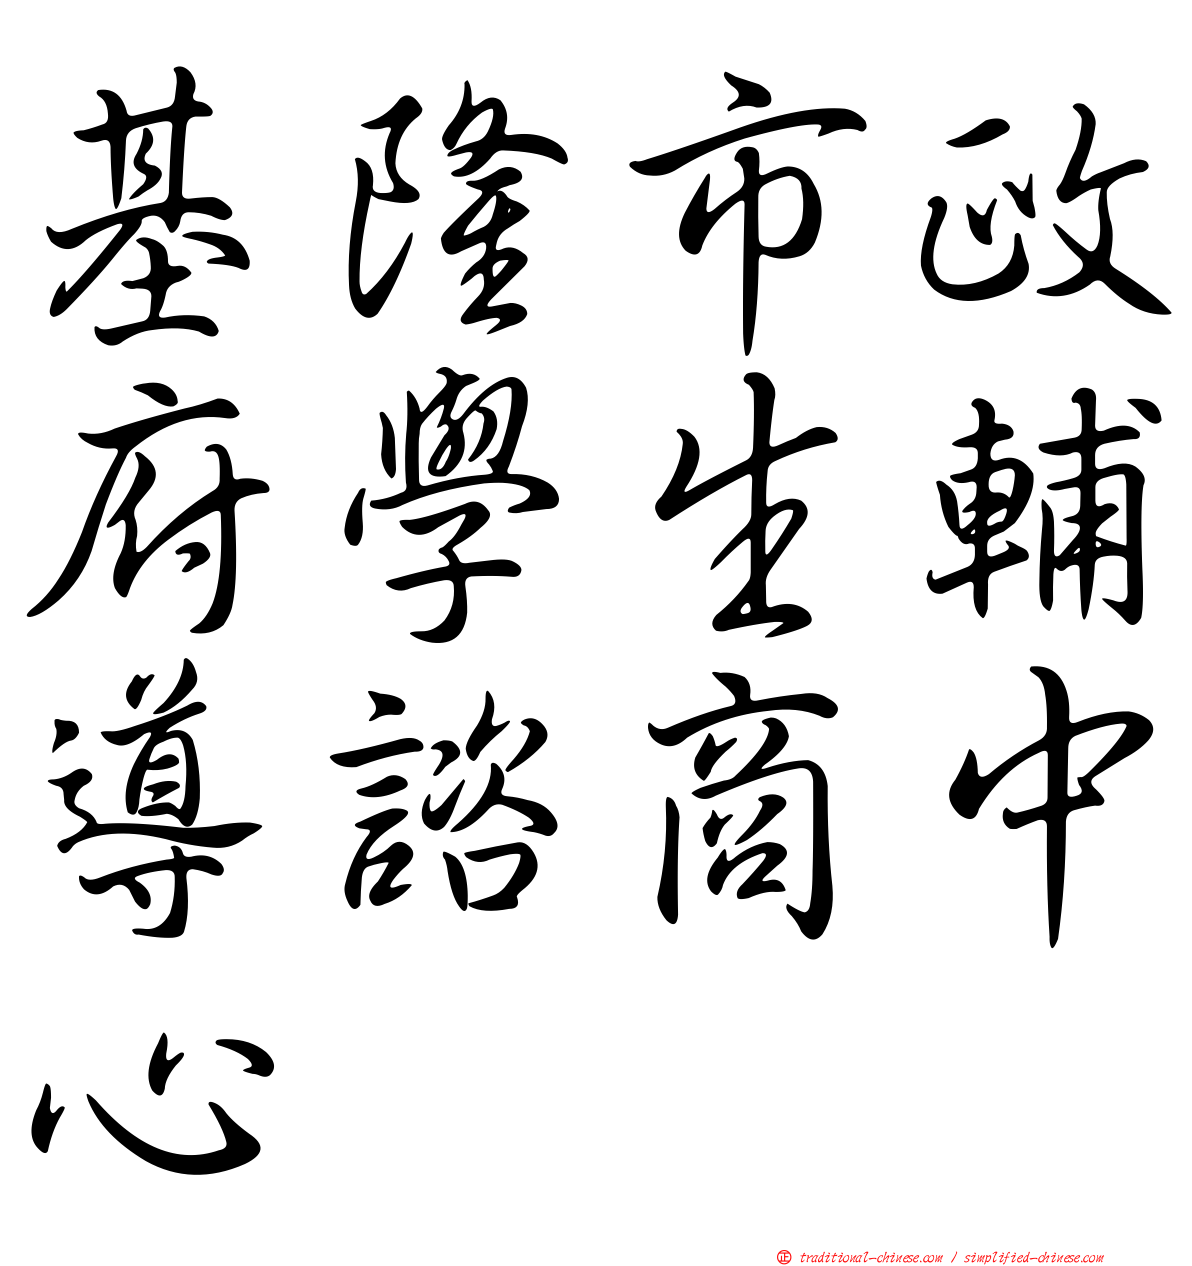 基隆市政
府學生輔
導諮商中
心
㊣ traditional-chinese.com / simplified-chinese.com